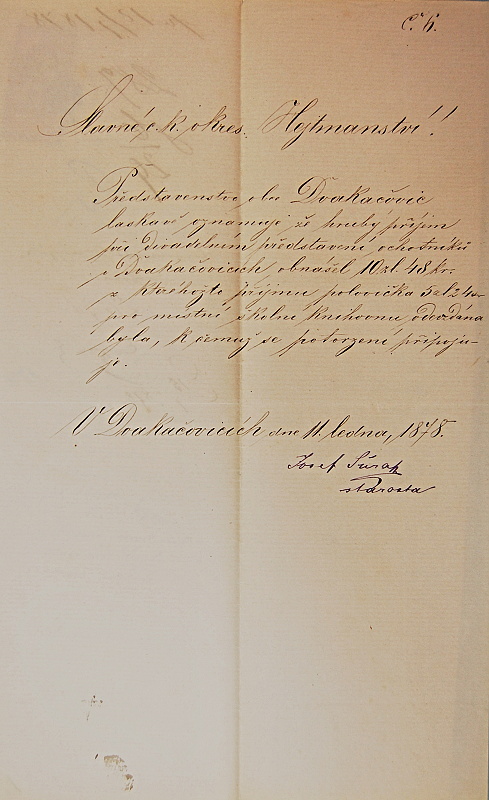 Č. 6.
Slavné c. k. okres. Hejtmanství!
Představenstvo obce Dvakačovic
laskavě oznamuje že hrubý příjem
při divadelním představení ochotníků
v Dvakačovicích obnášel 10 zl. 48 kr.
z kteréhožto příjmu polovička 5 zl 24 kr
pro místní školní knihovnu odevzdána
byla, k čemuž se potvrzení připoju-
je.
V Dvakačovicích dne 11. ledna, 1878.
Josef
starosta